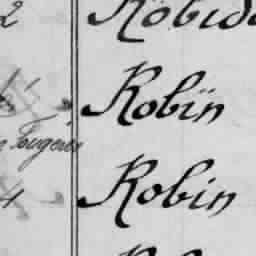 2 Robid
Robin
Fougères
4 Robin